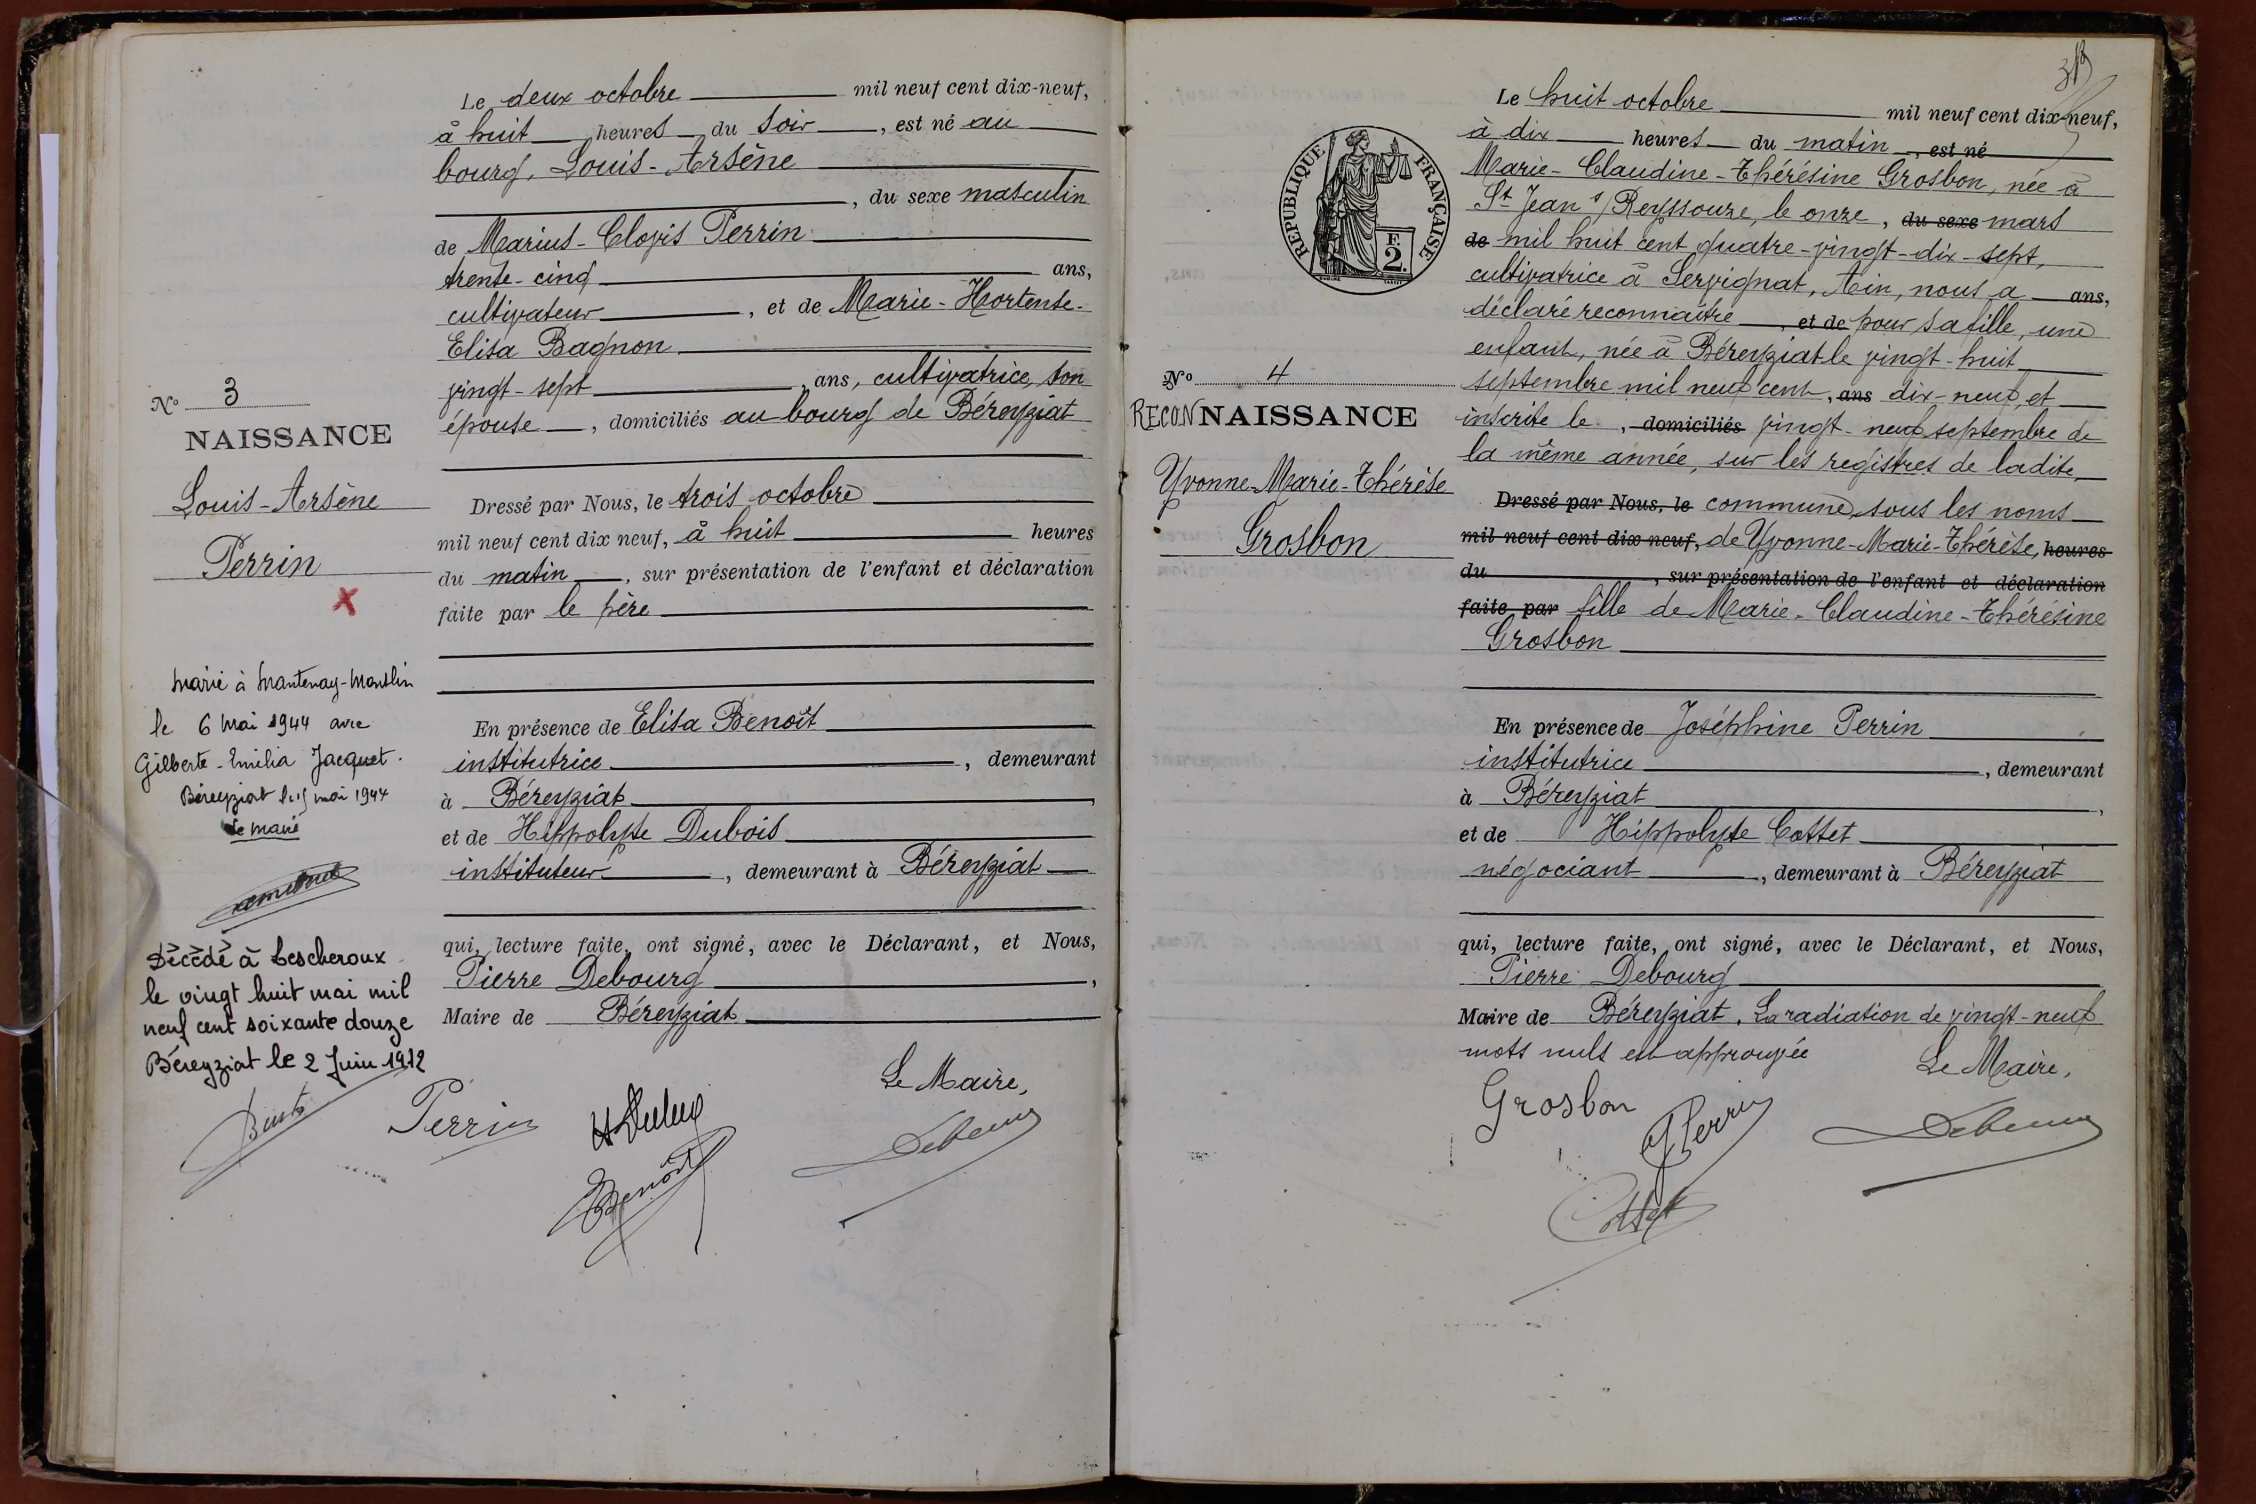 N° 3
NAISSANCE
Louis-Arsène
Perrin
Marié à Mantenay-Montlin
le 6 Mai 1944 avec
Gilberte-Emilia Jacquet.
Béreyziat le 15 mai 1944
Le maire
Décédé à Lescheroux
le vingt huit mai mil
neuf cent soixante douze
Béreyziat le 2 Juin 1972
Le deux octobre mil neuf cent dix-neuf,
à huit heures du soir, est né au
bourg, Louis-Arsène
, du sexe masculin
de Marius-Clovis Perrin
trente-cinq ans,
cultivateur, et de Marie-Hortense-
Elisa Bagnon
vingt-sept ans, cultivatrice, son
épouse, domiciliés au bourg de Béreyziat
Dressé par Nous, le trois octobre
mil neuf cent dix neuf, à huit heures
du matin, sur présentation de l'enfant et déclaration
faite par le père
En présence de Elisa Benoît
institutrice, demeurant
à Béreyziat,
et de Hippolyte Dubois
instituteur, demeurant à Béreyziat
qui, lecture faite, ont signé, avec le Déclarant, et Nous,
Pierre Debourg,
Maire de Béreyziat
Le Maire,
Perrin
Benoît
N° 4
RECONNAISSANCE
Yvonne-Marie-Thérèse
Grosbon
RÉPUBLIQUE FRANÇAISE
F.
2.
Le huit octobre mil neuf cent dix-neuf,
à dix heures du matin, est né
Marie-Claudine-Thérésine Grosbon, née à
St Jean s/ Reyssouze, le onze, du sexe mars
de mil huit cent quatre-vingt-dix-sept,
cultivatrice à Servignat, Ain, nous a ans,
déclaré reconnaître, et de pour sa fille, une
enfant, née à Béreyziat le vingt-huit
septembre mil neuf cent, ans dix-neuf, et
inscrite le, domiciliés vingt-neuf septembre de
la même année, sur les registres de ladite
Dressé par Nous, le commune, sous les noms
mil neuf cent dix neuf, de Yvonne-Marie-Thérèse, heures
du, sur présentation de l'enfant et déclaration
faite par fille de Marie-Claudine-Thérésine
Grosbon
En présence de Joséphine Perrin
institutrice, demeurant
à Béreyziat,
et de Hippolyte Cottet
négociant, demeurant à Béreyziat
qui, lecture faite, ont signé, avec le Déclarant, et Nous,
Pierre Debourg,
Maire de Béreyziat. La radiation de vingt-neuf
mots nuls est approuvée
Le Maire,
Grosbon
J Perrin
Cottet